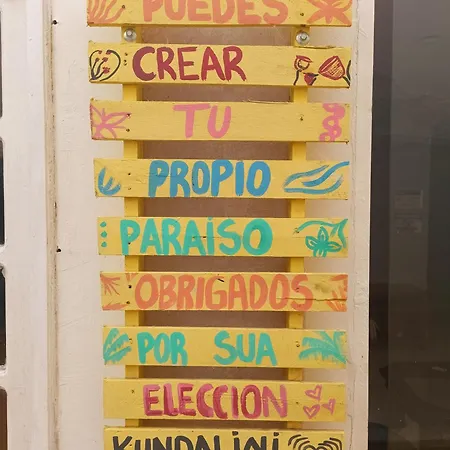 PUEDES
CREAR
TU
PROPIO
PARAISO
OBRIGADOS
POR SUA
ELECCION
KUNDALINI